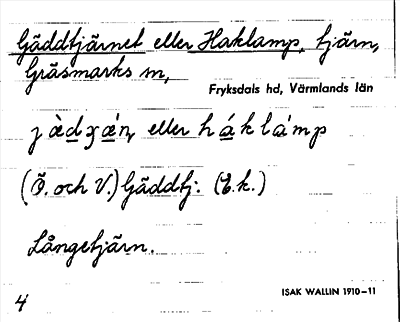 Gäddtjärnet eller Haklamp, tjärn,
Gräsmarks sn,
Fryksdals hd, Värmlands län
eller
(Ö. och V.) Gäddtj: (E.k.)
Långetjärn.
ISAK WALLIN 1910–11
4